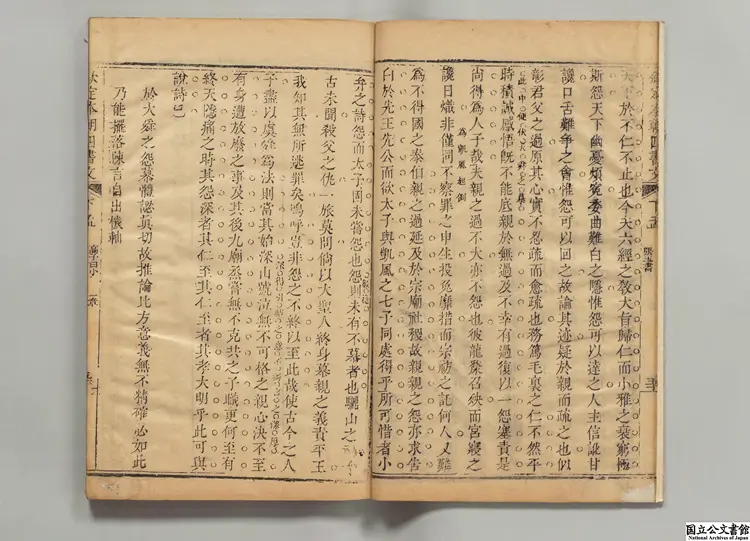 天下於不仁不止也今夫六經之敎大旨歸仁而小雅之哀窮極
斯怨天下幽憂煩寃委曲難白之隱惟怨可以達之人主信讒甘
讒口舌難爭之會惟怨可以回之故論其迹疑於親而疏之也似
彰君父之過原其心實不忍疏而愈疏也務篤毛裏之仁不然平
時積誠感悟旣不能底親於無過及不幸有過復以一怨塞責是
尚得為人子哉夫親之過不大亦不怨也彼龍漦召殃而宮寢之
為凱風起例
讒日熾非僅同不察罪之申生投兔靡措而宗祊之託何人又難
為不得國之泰伯親之過延及於宗廟社稷故親親之怨亦求告
白於先王先公而欲太子與凱風之七子同處得乎所可惜者小
弁之詩怨而太子固未嘗怨也怨則未有不慕者也驪山之
古未聞殺父之仇一旅莫問倘以大聖人終身慕親之義責平王
我知其無所逃罪矣嗚呼豈非怨之不終以至此哉使古今之人
子盡以虞舜為法則當其始深山號泣無不可格之親心決不至
有身遭放廢之事及其後九廟烝嘗無不克共之子職更何至有
終天隱痛之時其怨深者其仁至其仁至者其孝大明乎此可與
說詩已
於大舜之怨慕體認真切故推論比方意義無不精確必如此
乃能擺落陳言自出機軸
欽定本朝四書文
下孟
張書
国立公文書館
National Archives of Japan